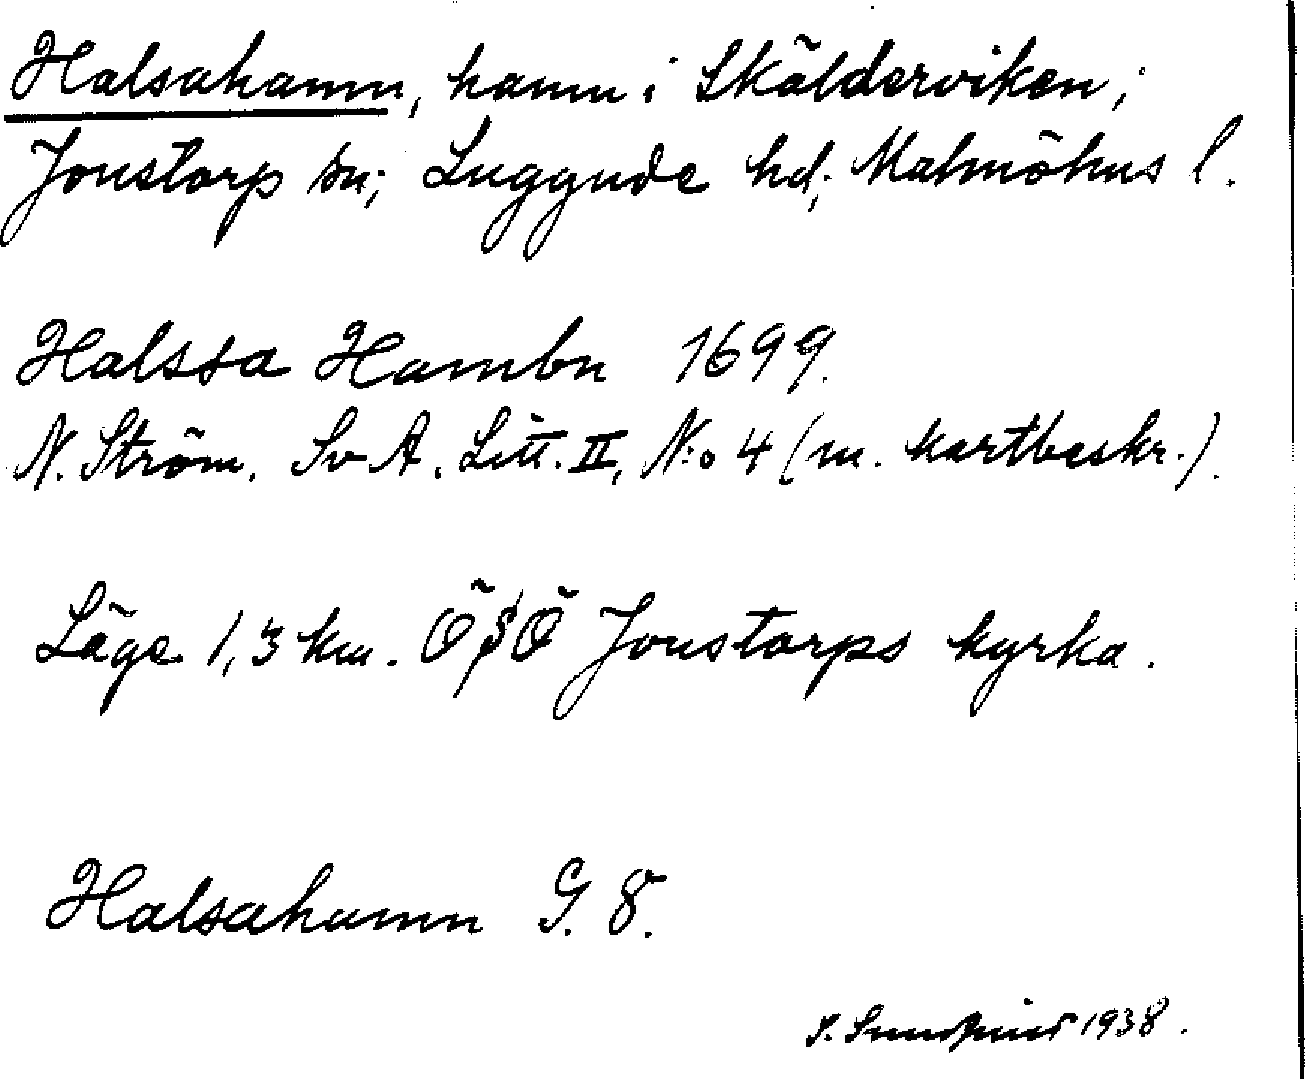 Halsahamn, hamn i Skälderviken;
Jonstorp sn; Luggude hd; Malmöhus l.
Halssa Hambn 1699.
N. Ström. Sv A. Litt. II, N:o 4 (m. kartbeskr.).
Läge 1,3 km. ÖSÖ Jonstorps kyrka.
Halsahamn G. 8.
S. 1938.